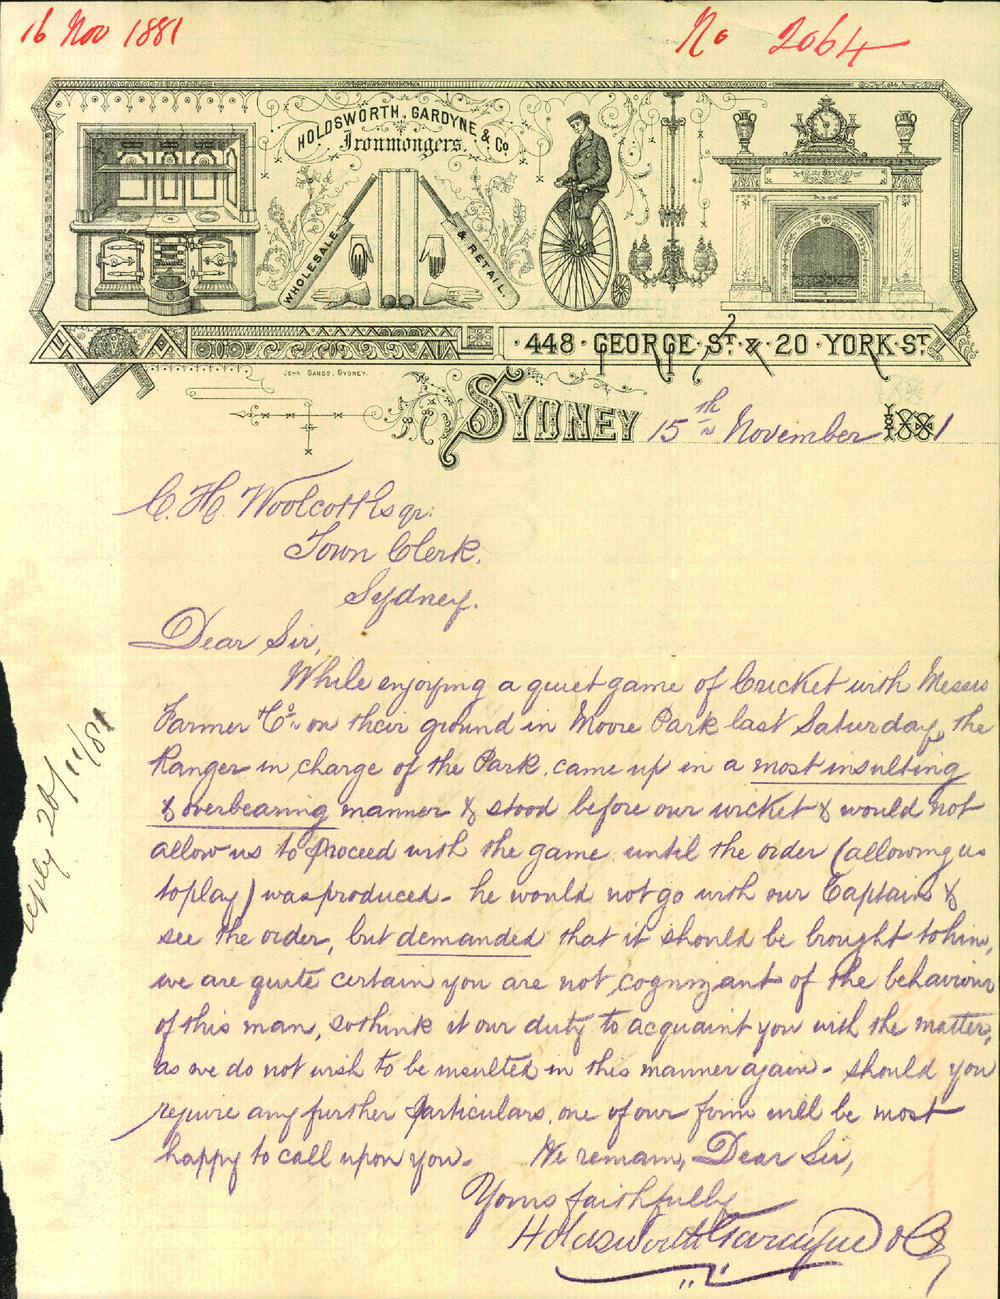 16 Nov 1881
No 2064
HOLDSWORTH, GARDYNE & Co
Ironmongers.
WHOLESALE
& RETAIL.
· 448 · GEORGE · ST. & · 20 · YORK · ST.
JOHN SANDS, SYDNEY.
SYDNEY 15th November 1881
C. H. Woolcott Esqr:
Town Clerk.
Sydney.
Dear Sir,
While enjoying a quiet game of Cricket with Messrs
Farmer & Co on their ground in Moore Park last Saturday, the
Ranger in charge of the Park, came up in a most insulting
& overbearing manner & stood before our wicket & would not
allow us to proceed with the game until the order (allowing us
to play) was produced - he would not go with our Captain &
see the order, but demanded that it should be brought to him,
we are quite certain you are not cognizant of the behaviour
of this man, so think it our duty to acquaint you with the matter,
as we do not wish to be insulted in this manner again - should you
require any further particulars, one of our firm will be most
happy to call upon you. We remain, Dear Sir,
Yours faithfully
Holdsworth Gardyne & Co
reply 20/11/81